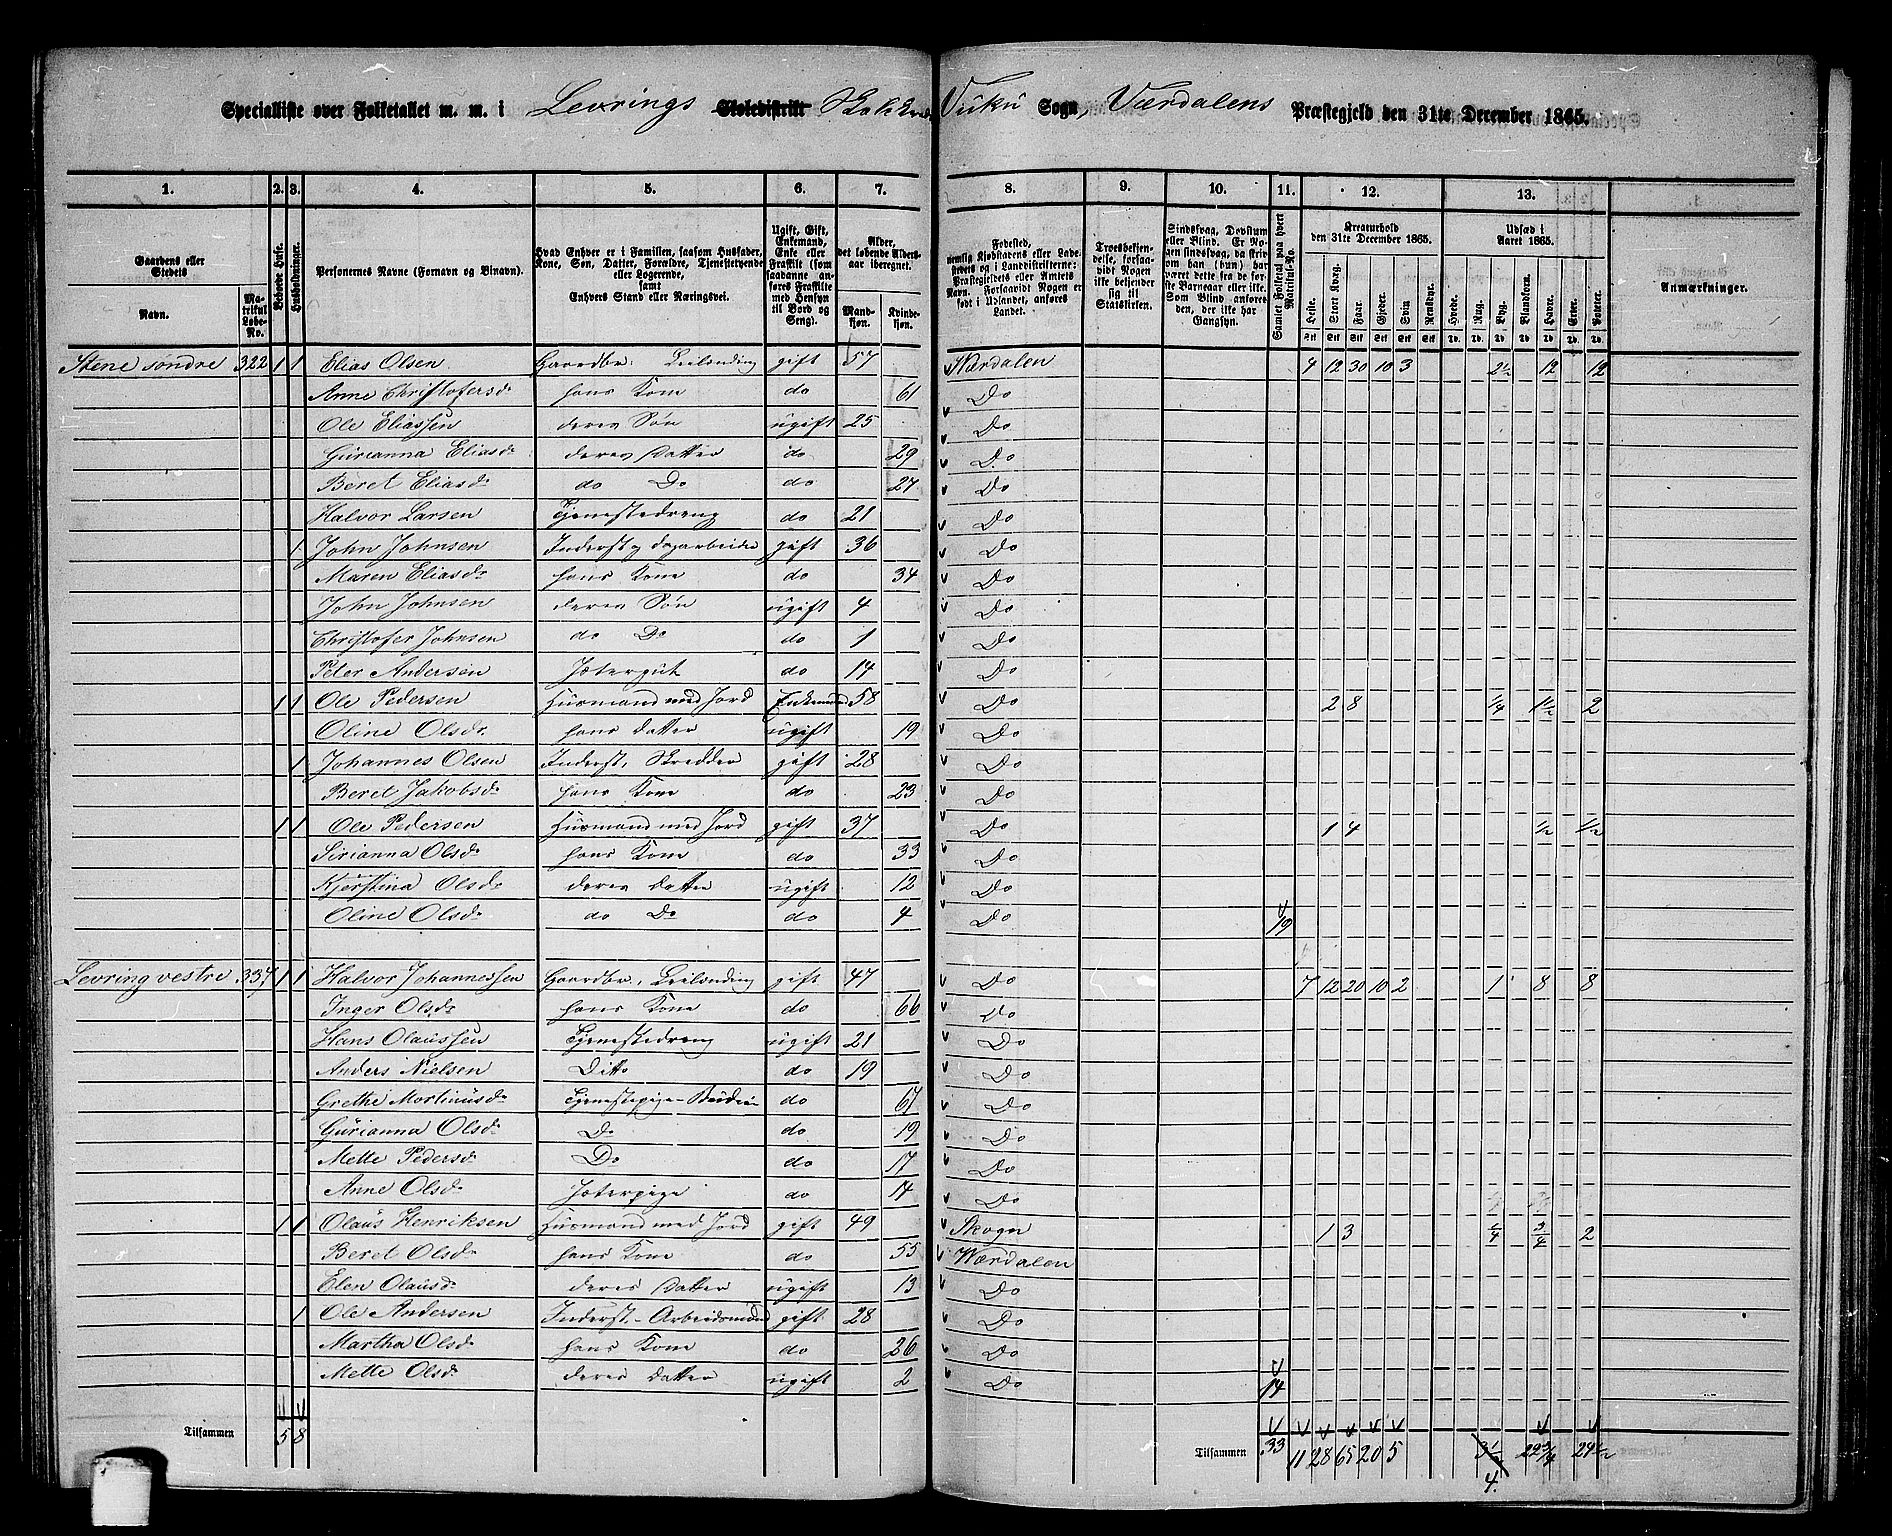 Specialliste over Folketallet m. m. i Levrings Skoledistrikt Vuku Sogn, Værdalens Præstegjeld den 31te December 1865.
1. 2. 3. 4. 5. 6. 7. 8. 9. 10. 11. 12. 13.
Gaardens eller Stedets
Navn.
Matrikul Løbe-No.
Beboede Huse.
Husholdninger.
Personernes Navne (Fornavn og Tilnavn).
Hvad Enhver er i Familien, saasom Husfader, Kone, Søn, Datter, Forældre, Tjenestetyende eller Logerende,
samt
Enhvers Stand eller Næringsvei.
Ugift, Gift, Enkemand, Enke eller Fraskilt (som saadanne anføres Fraskilte med Hensyn til Bord og Seng).
Alder, det løbende Alders-aar iberegnet.
Mandkjøn. Kvindekjøn.
Fødested,
nemlig Kjøbstadens eller Ladestedets og i Landdistrikterne: Præstegjeldets eller Amtets Navn. Forsaavidt Nogen er født i Udlandet, anføres Landet.
Troesbekjendelse, forsaavidt Nogen ikke bekjender sig til Statskirken.
Sindssvag, Døvstum eller Blind. Er Nogen sindssvag, da skrives om han (hun) har været dette fra de første Barneaar eller ikke. Som Blind anføres den, der ikke har Gangsyn.
Samlet Folketal paa hvert Matrikul-No.
Kreaturhold
den 31te December 1865.
Heste. Stort Kvæg. Faar. Gjeder. Svin. Rensdyr.
Udsæd i
Aaret 1865.
Hvede. Rug. Byg. Blandkorn. Havre. Erter. Poteter.
Anmærkninger.
Stene søndre 322 1 1 Elias Olsen Gaardbr: Leilending gift 57 Værdalen 4 12 30 10 3 2½ 12 12
Anne Christofersd. hans Kone do 61 Do
Ole Eliassen deres Søn ugift 25 Do
Gurianna Eliasd. deres Datter do 29 Do
Beret Eliasd. do Do do 27 Do
Halvor Larsen Tjenestedreng do 21 Do
1 John Johnsen Inderst og dagarbeider gift 36 Do
Maren Eliasd. hans Kone do 34 Do
John Johnsen deres Søn ugift 4 Do
Christofer Johnsen do Do do 1 Do
Peter Andersen Jætergut do 14 Do
1 1 Ole Pedersen Husmand med Jord Enkemand 58 Do 2 8 ¼ 1½ 2
Oline Olsd. hans Datter ugift 19 Do
1 Johannes Olsen Inderst, Skredder gift 28 Do
Beret Jakobsd. hans Kone do 23 Do
1 1 Ole Pedersen Husmand med Jord gift 37 Do 1 4 ½ ½
Sirianna Olsd. hans Kone do 33 Do
Kjerstina Olsd. deres Datter ugift 12 Do
Oline Olsd. do Do do 4 Do 19
Levring vestre 337 1 1 Halvor Johannessen Gaardbr. Leilending gift 47 Do 7 12 20 10 2 1 8 8
Inger Olsd. hans Kone do 66 Do
Hans Olaussen Tjenestedreng ugift 21 Do
Anders Nielsen Ditto do 19 Do
Grethe Mortinusd. Tjenestepige - Budeie do 67 Do
Gurianna Olsd. Do do 19 Do
Mette Pedersd. Do do 17 Do
Anne Olsd. Jæterpige do 14 Do
1 1 Olaus Henriksen Husmand med Jord gift 49 Skogn 1 3 ¼ ¾ 2
Beret Olsd. hans Kone do 55 Værdalen
Elen Olausd. deres Datter ugift 13 Do
1 Ole Andersen Inderst - Arbeidsmand gift 28 Do
Martha Olsd. hans Kone do 26 Do
Mette Olsd. deres Datter ugift 2 Do 14
Tilsammen 5 8 Tilsammen 33 11 28 65 20 5 3½ 22¾ 24½
4.